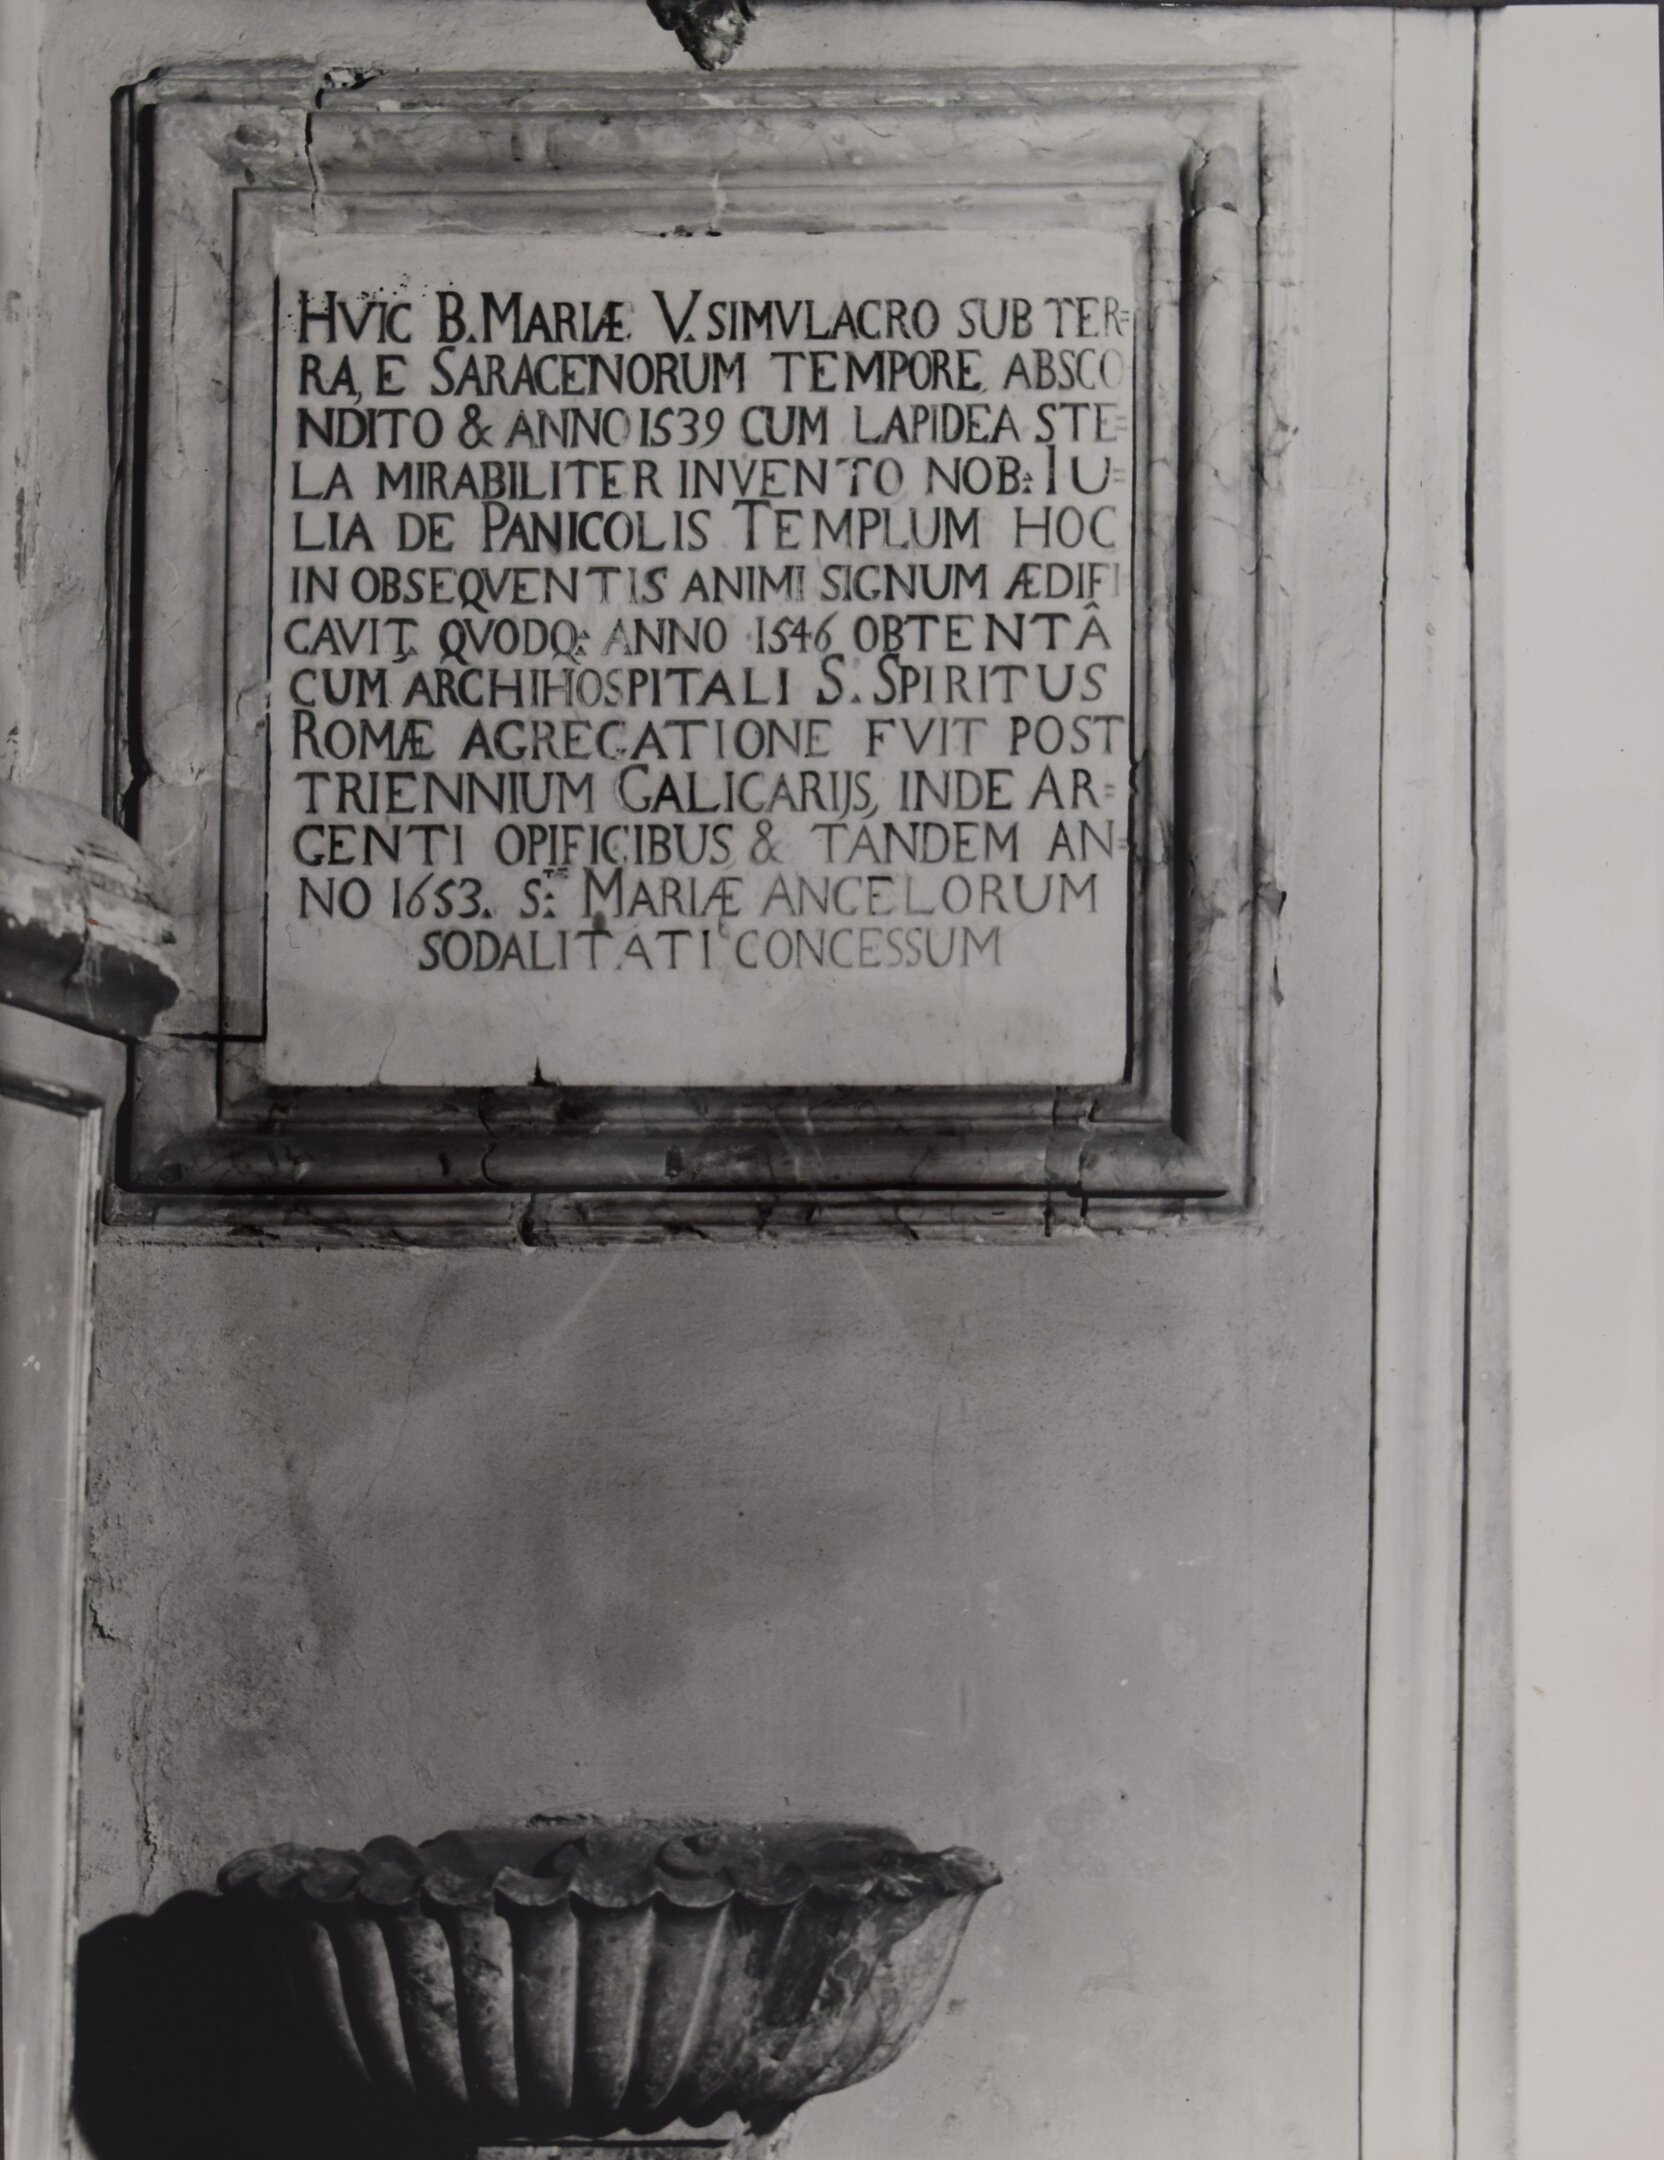 HVIC B. MARIÆ V. SIMVLACRO SUB TER=
RA, E SARACENORUM TEMPORE, ABSCO
NDITO & ANNO 1539 CUM LAPIDEA STE=
LA MIRABILITER INVENTO NOB: IU=
LIA DE PANICOLIS TEMPLUM HOC
IN OBSEQVENTIS ANIMI SIGNUM ÆDIFI
CAVIT, QVODQ: ANNO 1546 OBTENTÂ
CUM ARCHIHOSPITALI S. SPIRITUS
ROMÆ AGREGATIONE FVIT POST
TRIENNIUM GALICARIJS, INDE AR=
GENTI OPIFICIBUS & TANDEM AN=
NO 1653. S:TÆ MARIÆ ANGELORUM
SODALITATI CONCESSUM